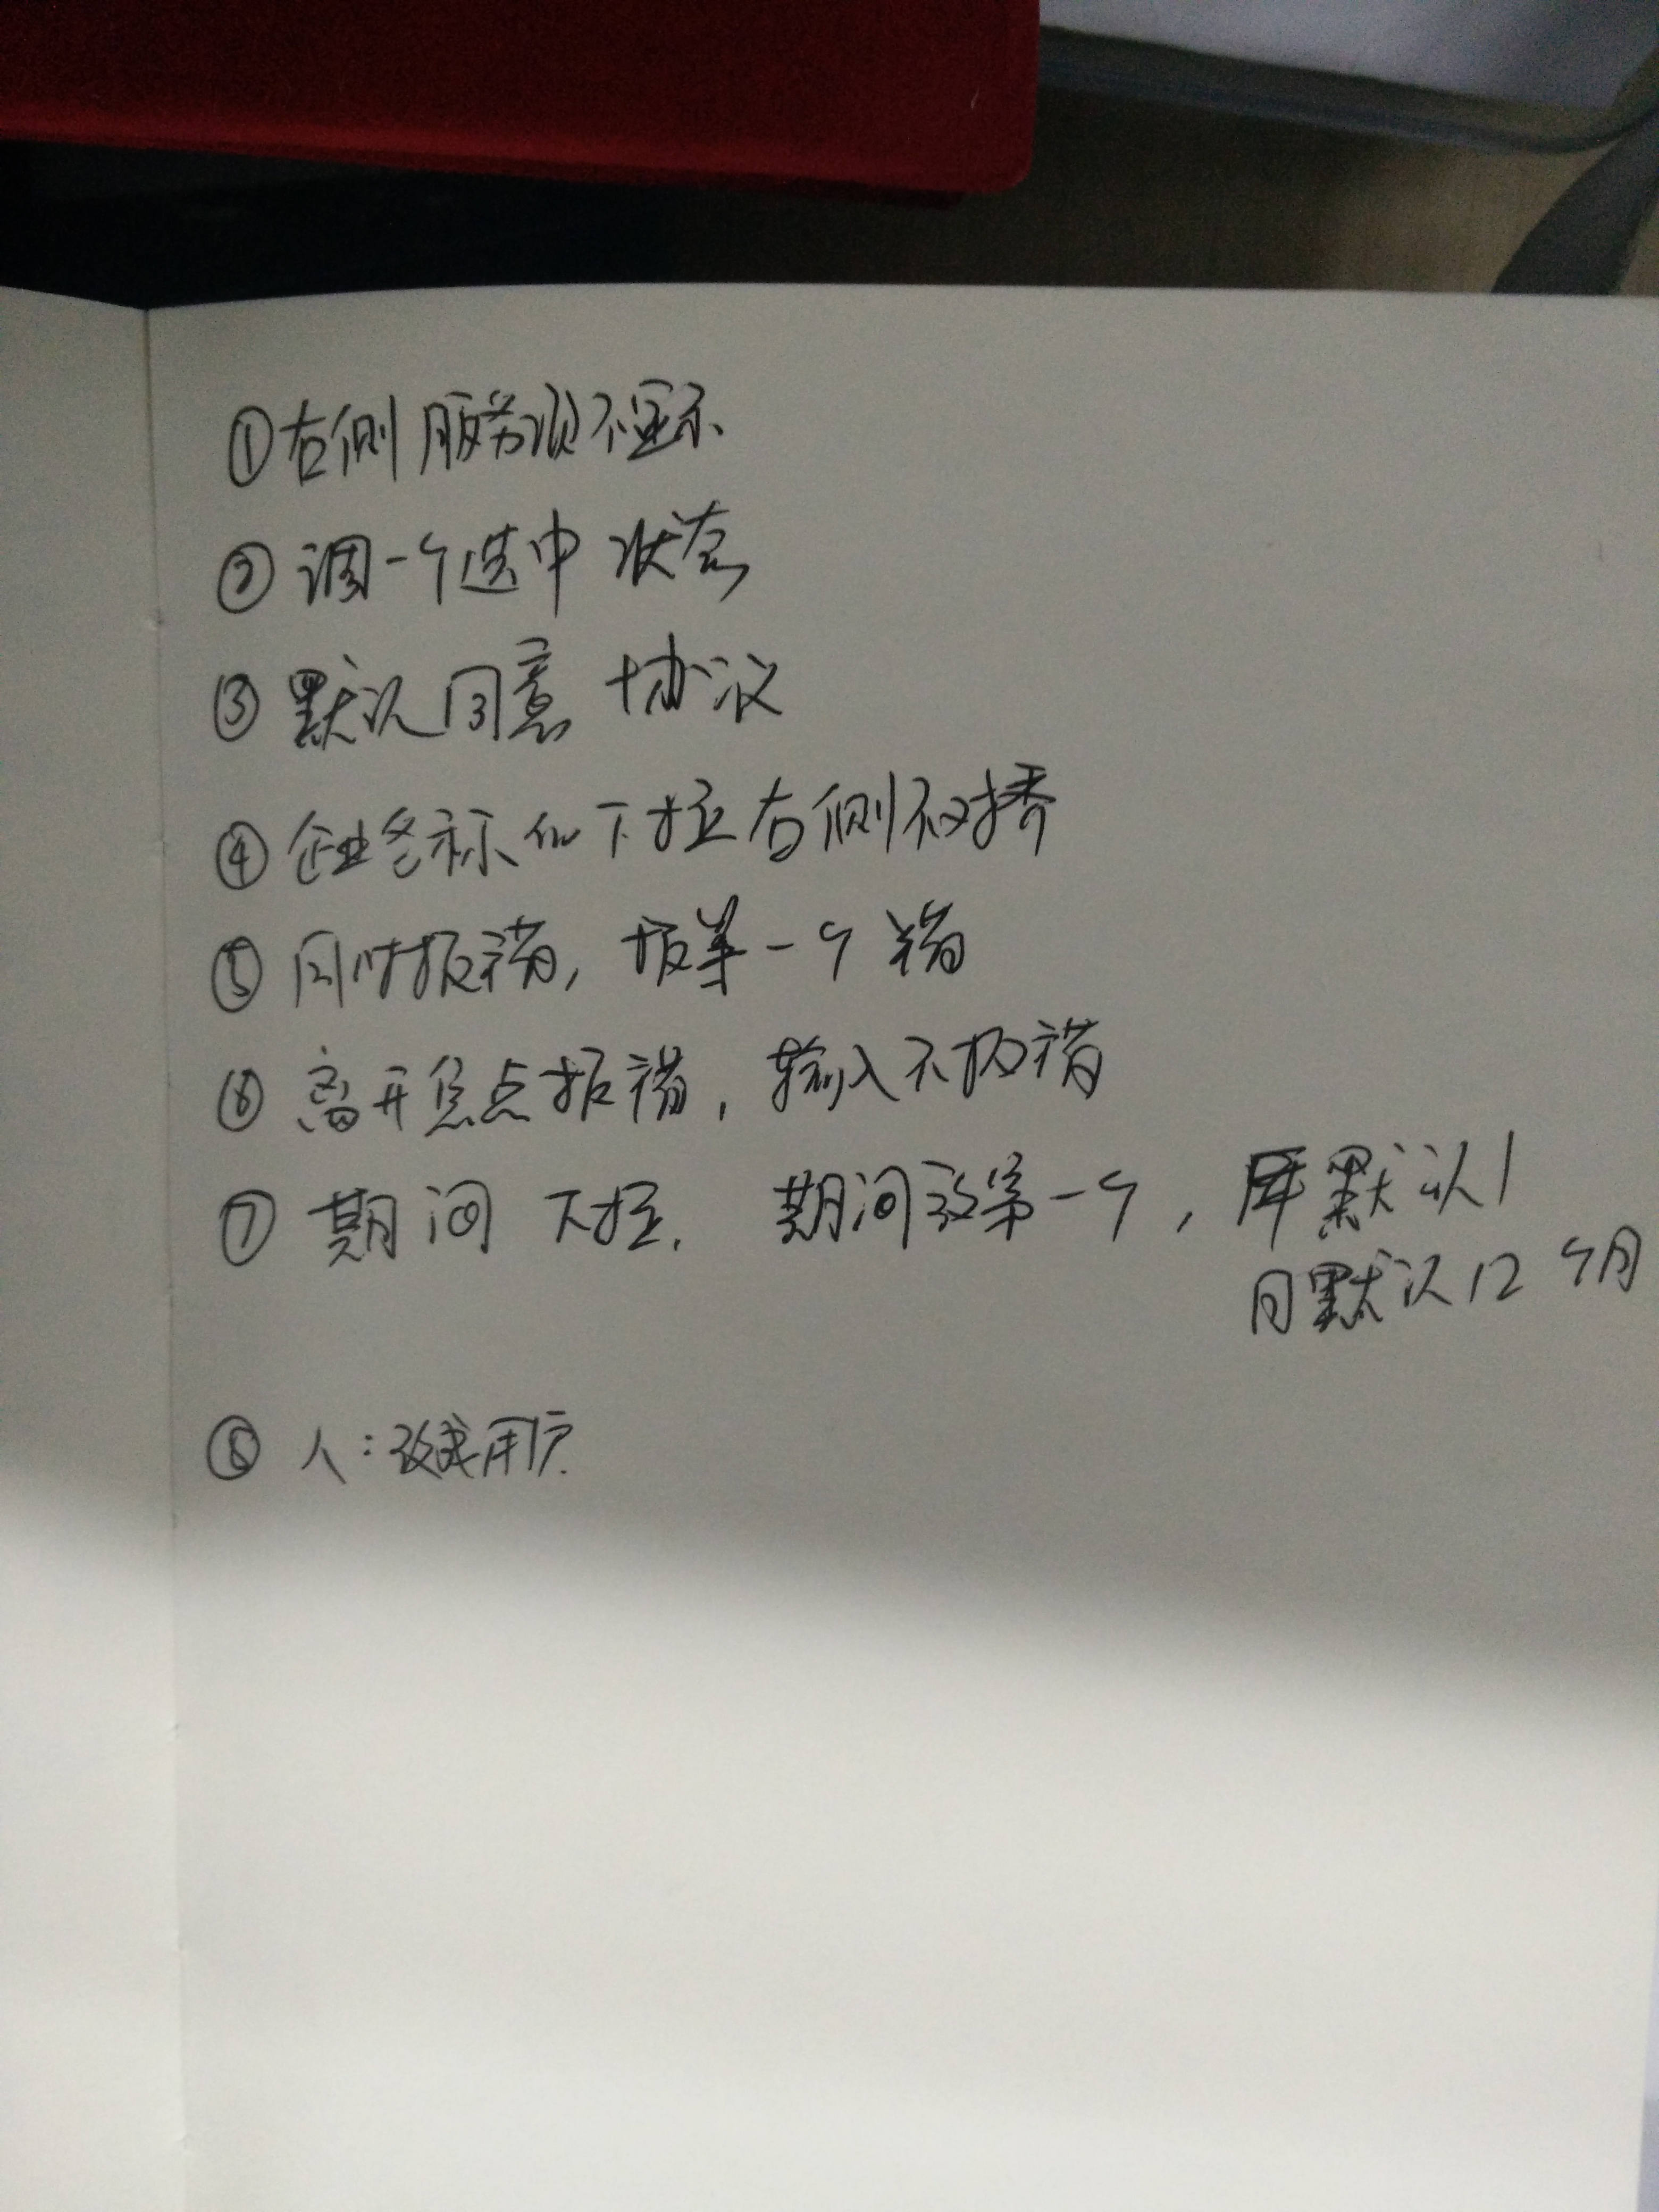 ①右侧服务项不显示
②调一个选中状态
③默认同意协议
④企业名称 下拉右侧不对
⑤同时报错,报第一个错
⑥离开焦点报错,输入不报错
⑦期间下拉. 期间改第一个, 年默认1
月默认12个月
⑧人:改成用户.